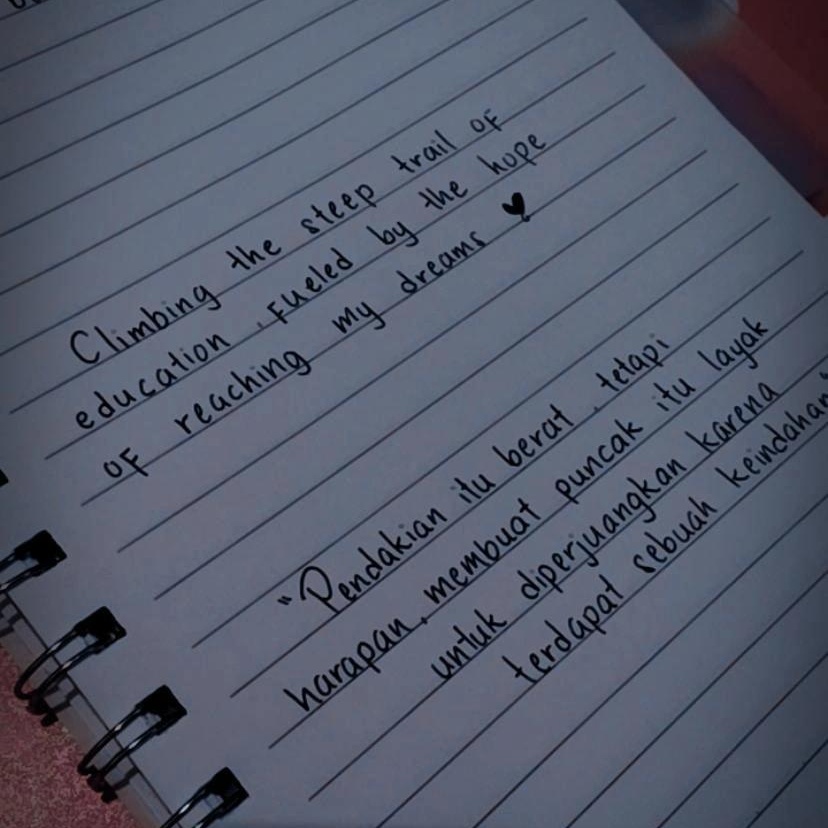 Climbing the steep trail of
education, fueled by the hope
of reaching my dreams ♥
"Pendakian itu berat, tetapi
harapan, membuat puncak itu layak
untuk diperjuangkan karena
terdapat sebuah keindahan"